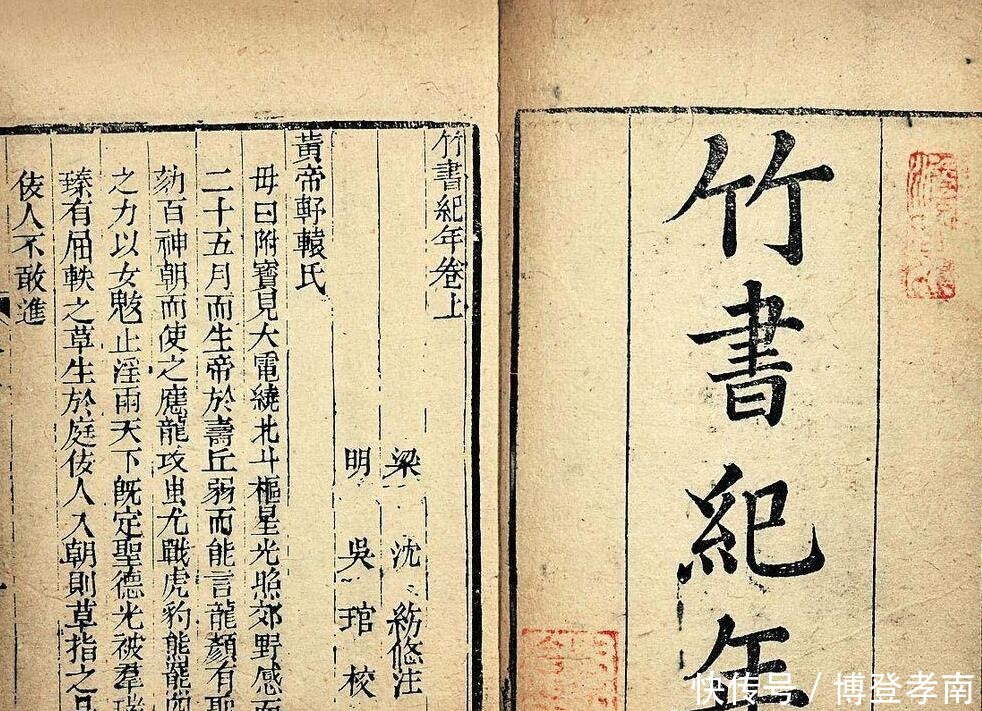 竹書紀年
竹書紀年卷上
梁 沈約 注
明 吳琯校
黃帝軒轅氏
母曰附寶見大電繞北斗樞星光照郊野感而
二十五月而生帝於壽丘弱而能言龍顏有聖
劾百神朝而使之應龍攻蚩尤戰虎豹熊羆四
之力以女魃止淫雨天下既定聖德光被羣瑞
臻有屈軼之草生於庭佞人入朝則草指之是
佞人不敢進
快传号 / 博登孝南